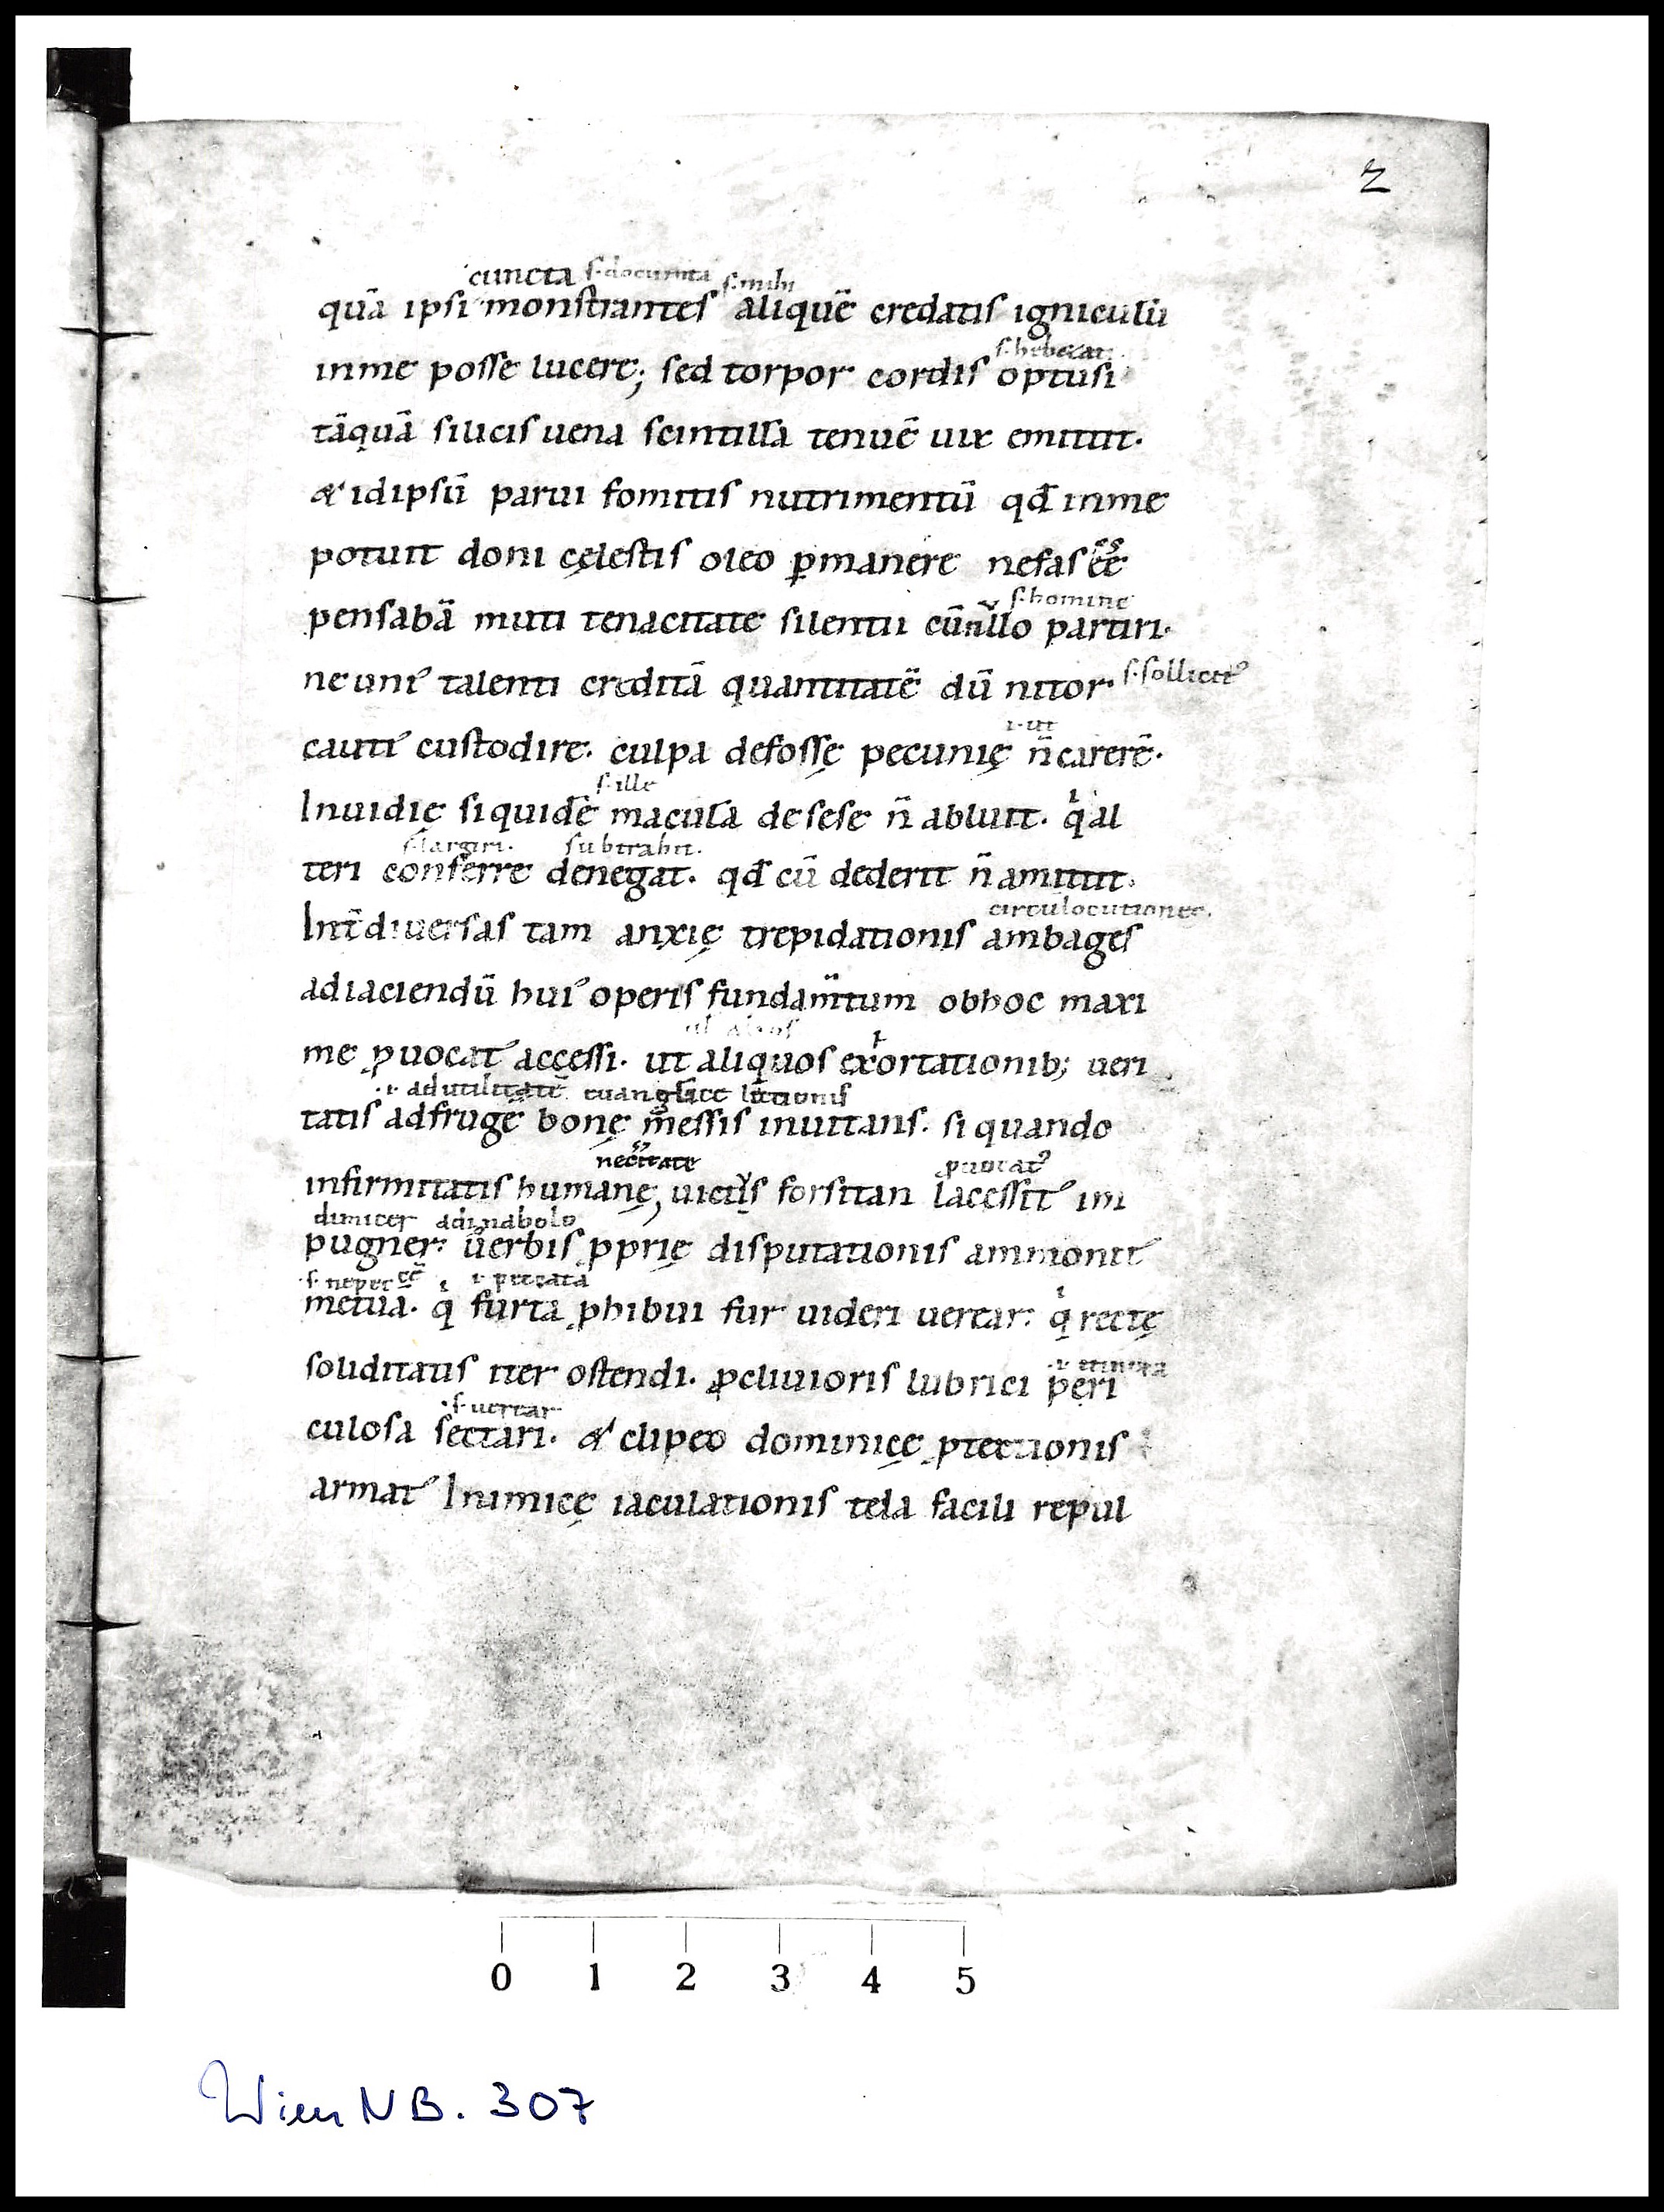 2
cuncta s. documta s. mihi
quā ipsi monstrantes aliquē credatis igniculū
s. hebetat
inme posse lucere; sed torpor cordis optusi
tāquā silicis uena scintillā tenuē uix emittit.
& idipsū parui fomitis nutrimentū qđ inme
potuit doni cęlestis oleo ꝑmanere nefas ēē
s. homine
pensabā muti tenacitate silentii cū nullo partiri.
ne uni᾽ talenti creditā quantitatē dū nitor s. sollicit᾽
i. ut
cauti᾽ custodire. culpa defossę pecunię n̄ carerē.
s. ille
Inuidię siquidē macula de sese n̄ abluit. qͥ al
s. largiri. subtrahit.
teri conferre denegat. qđ cū dederit n̄ amittit.
circulocutiones.
Int̄ diuersas tam anxię trepidationis ambages
adiaciendū hui᾽ operis fundam̄tum obhoc maxi
me ꝓuocat᾽ accessi. ut aliquos exhortationib; ueri
i. ad utilitatē euanglicę lectionis
tatis adfrugē bonę messis inuitans. si quando
nec̄itate ꝓuocat᾽
infirmitatis humanę, uictus forsitan lacessit᾽ im
dimicer a diabolo
pugner: uerbis ꝓprię disputationis ammonit᾽
s. ne per ēē i. peccata
metua. qͥ furta ꝓhibui fur uideri uerear: qͥ rectę
soliditatis iter ostendi. ꝓcliuioris lubrici peri
s. uerear
culosa sectari. & clipeo dominicę ꝓtectionis
armat᾽ Inimicę iaculationis tela facili repul
0 1 2 3 4 5
Wien NB. 307